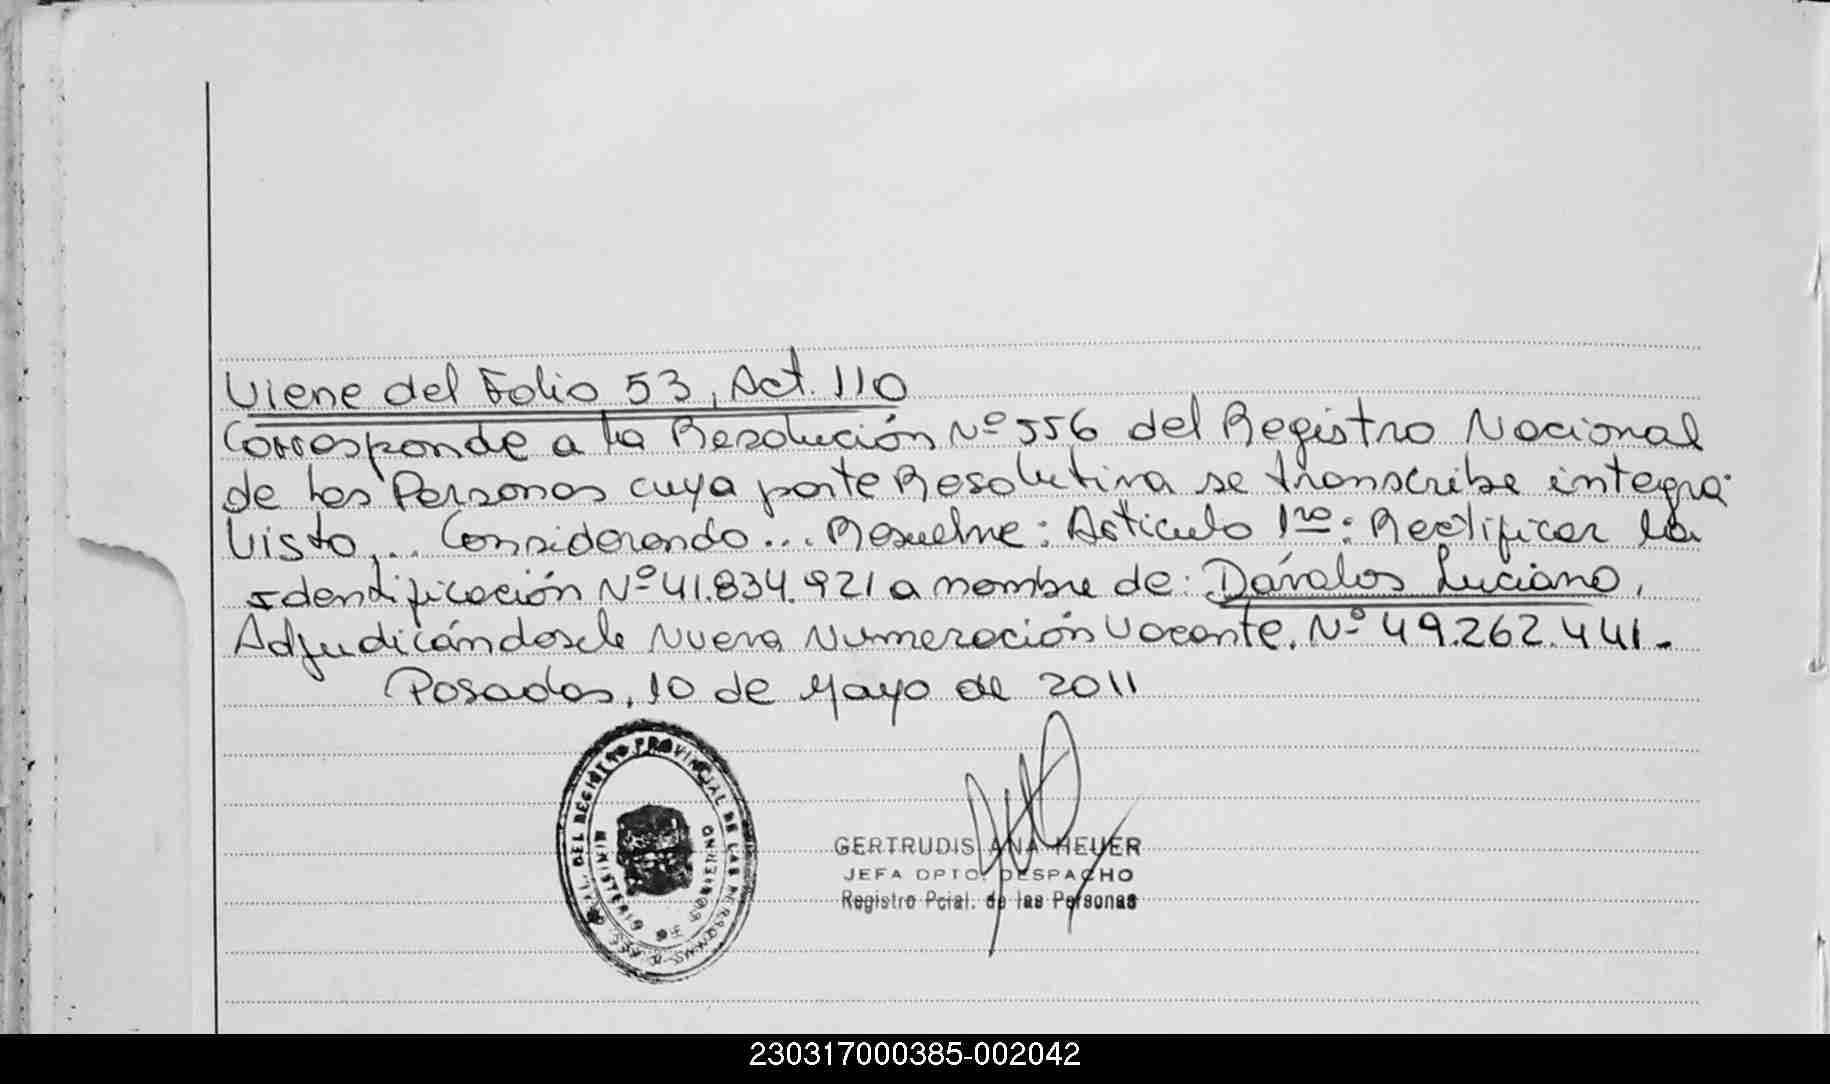 Viene del Folio 53, Act. 110
Corresponde a la Resolución Nº 556 del Registro Nacional
de las Personas cuya parte Resolutiva se transcribe integra:
Visto... Considerando... Resuelve: Artículo 1ro: Rectificar la
Identificación Nº 41.834.921 a nombre de: Dávalos Luciano,
Adjudicándosele Nueva Numeración Vacante. Nº 49.262.441.-
Posadas, 10 de Mayo de 2011
DEL REGISTRO PROVINCIAL DE LAS PERSONAS
MINISTERIO DE GOBIERNO
GERTRUDIS ANA HEUER
JEFA DPTO. DESPACHO
Registro Pcial. de las Personas
230317000385-002042